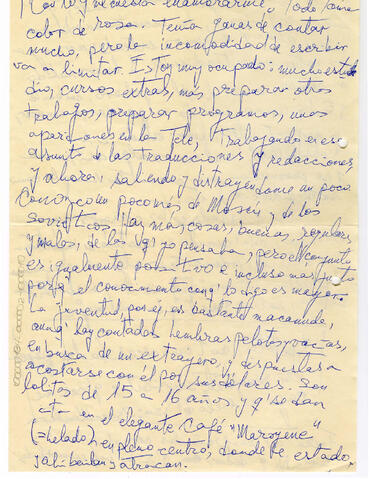 me enamorarme, Todo toma
color de rosa. Tenía ganas de contar
mucho, pero la incomodidad de escribir
va a limitar. Estoy muy ocupado: mucho estu-
dio, cursos extras, más preparar otros
trabajos, preparar programas, unas
apariciones en la Tele, Trabajando en ese
asunto de las traducciones y redacciones
y ahora, saliendo y distrayéndome un poco
Conozco un poco más de Moscú y de los
soviéticos, Hay más cosas, buenas, regulares
y malas, de las q' yo pensaba, pero el conjunto
es igualmente positivo e incluso más justo
porq' el conocimiento como lo digo es mayor.
La juventud, por ej, es bastante macanuda,
aunq' hay contadas hembras pelotos y
en busca de un extranjero, y dispuestas a
acostarse con él por sus dólares. Son
lolitas de 15 a 16 años y q' se dan
cita en el elegante Café "Maroyene"
(=helado) en pleno centro, donde he estado.
Jahí bailan y atracan.